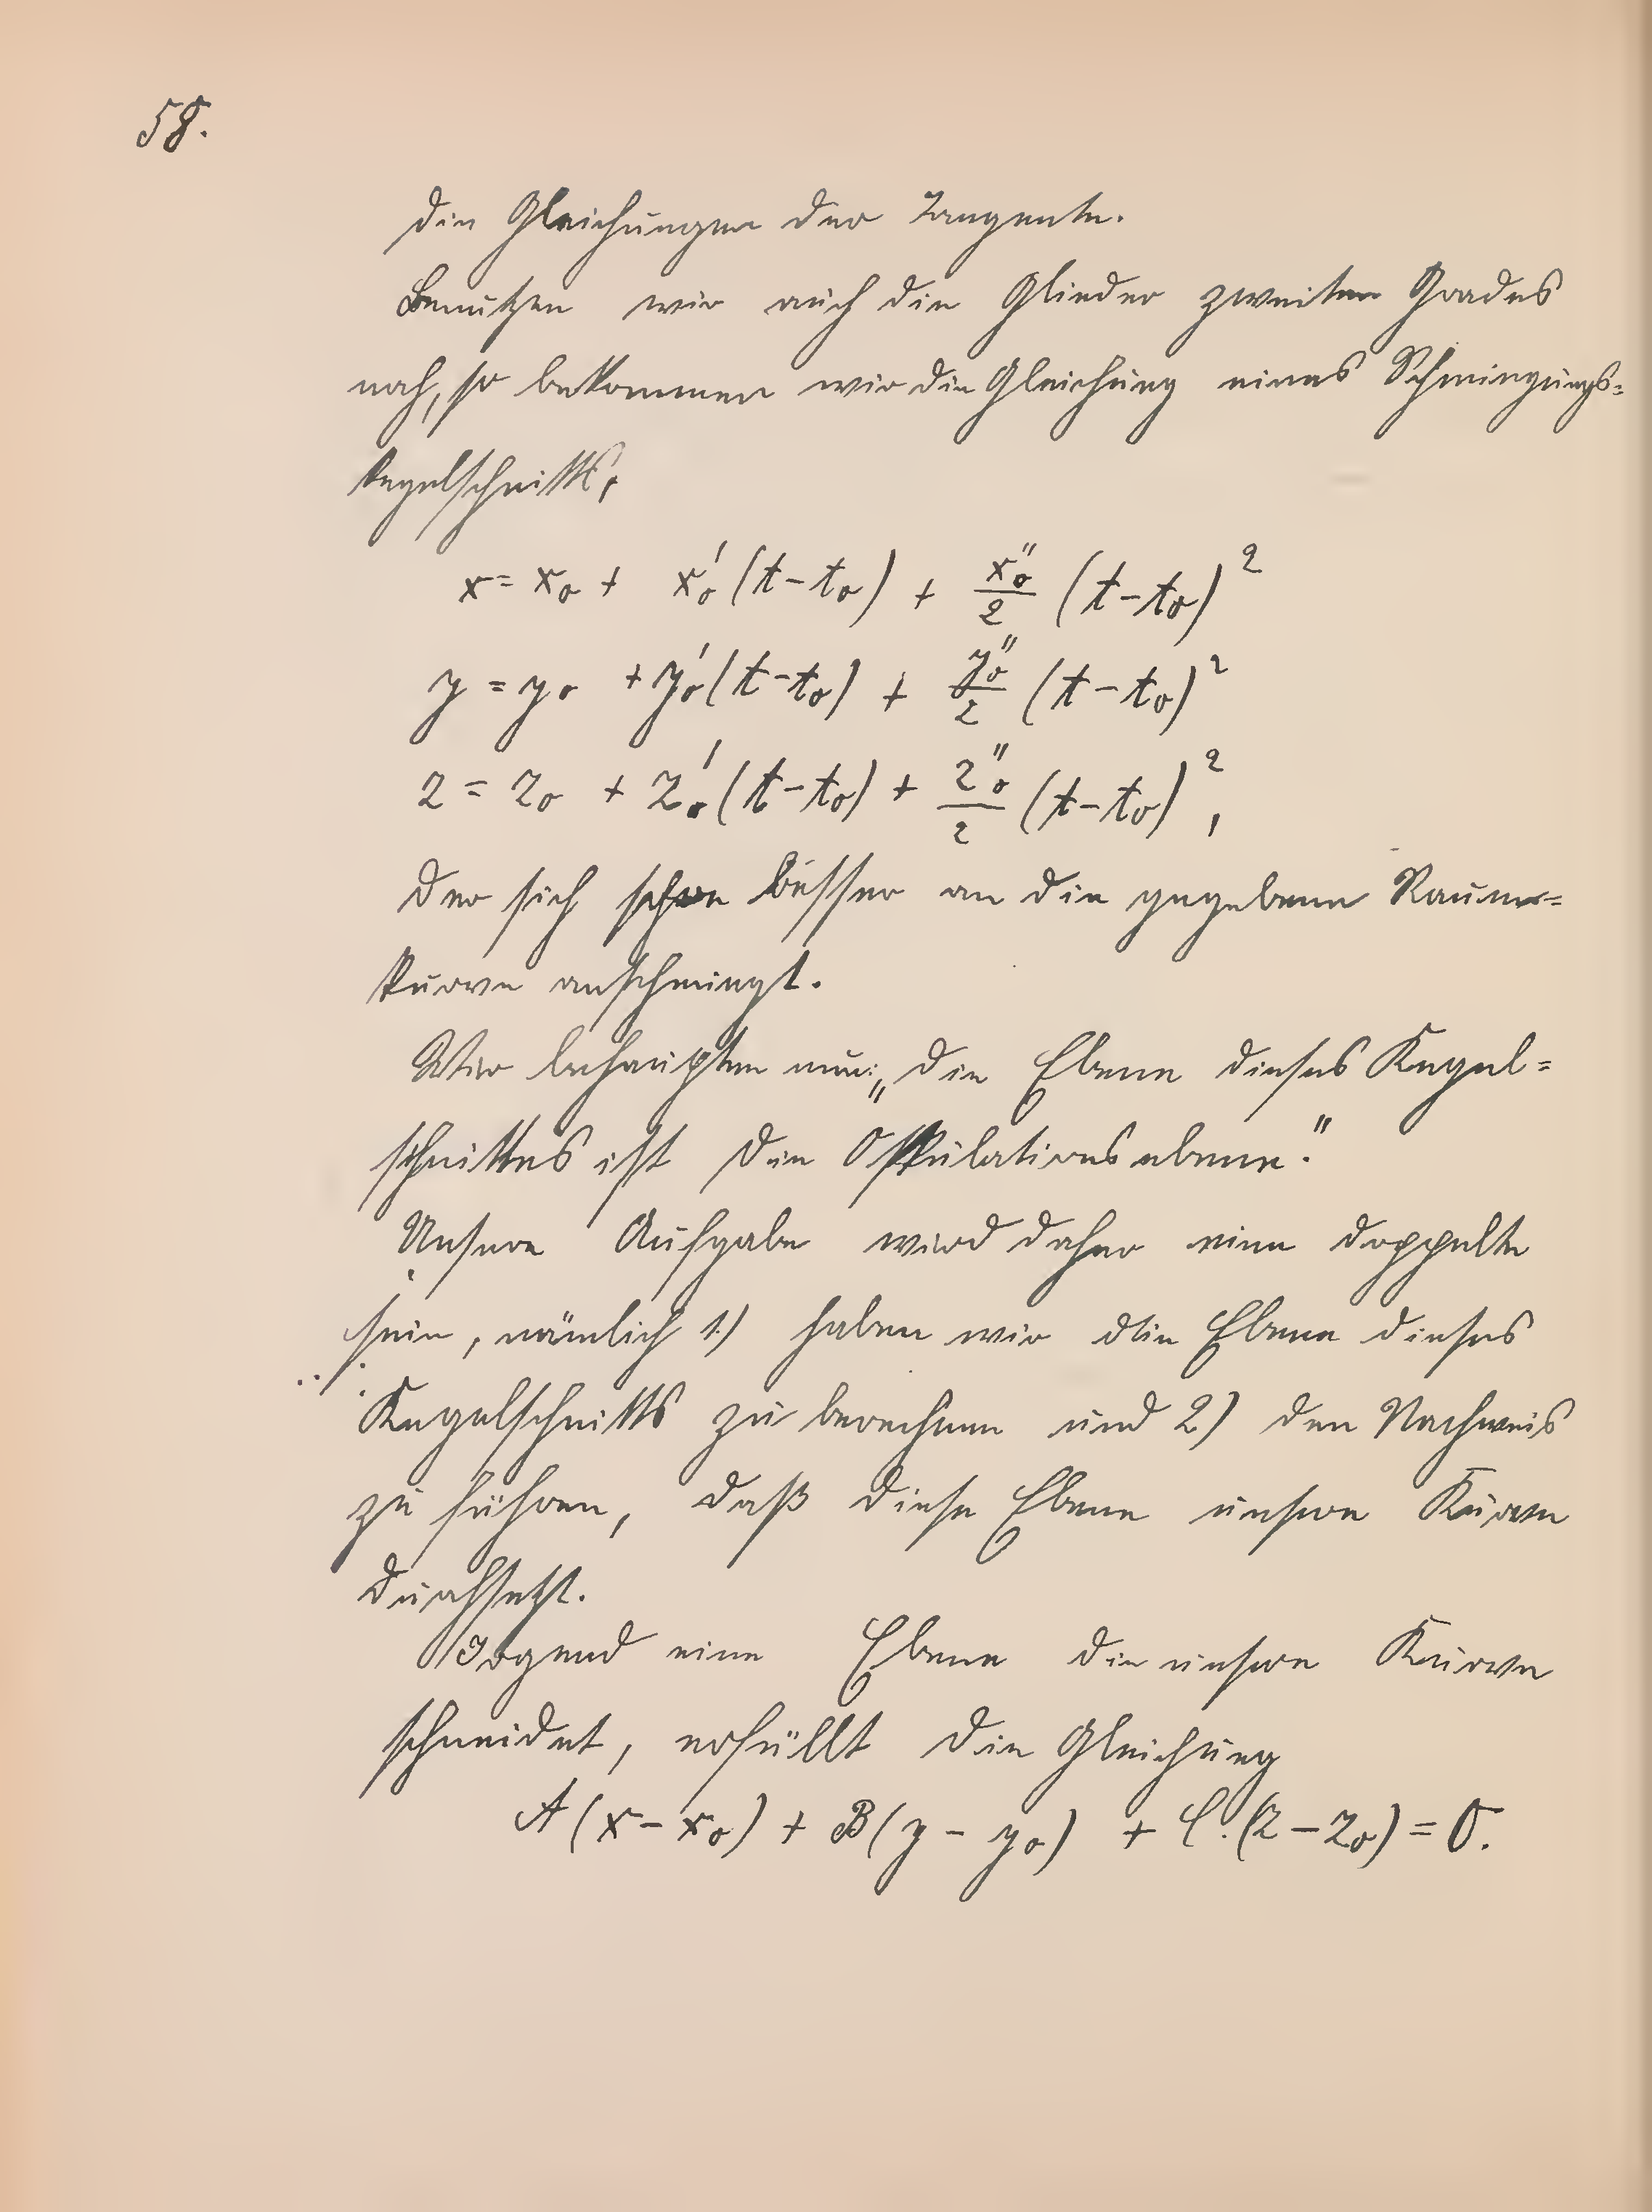 58.
die Gleichungen der Tangente.
Benutzen wir auch die Glieder zweiten Grades
noch, so bekommen wir die Gleichung eines Schmiegungs=
kegelschnitts,
x = x₀ + x₀′ (t - t₀) + x₀″/2 (t - t₀)²
y = y₀ + y₀′ (t - t₀) + y₀″/2 (t - t₀)²
z = z₀ + z₀′ (t - t₀) + z₀″/2 (t - t₀)²,
der sich schon besser an die gegebene Raum=
kurve anschmiegt.
Wir behaupten nun: „die Ebene dieses Kegel=
schnittes ist die Oskulationsebene."
Unsere Aufgabe wird daher eine doppelte
sein, nämlich 1.) haben wir die Ebene dieses
Kegelschnitts zu berechnen und 2) den Nachweis
zu führen, daß diese Ebene unsere Kurve
durchsetzt.
Irgend eine Ebene die unsere Kurve
schneidet, erfüllt die Gleichung
A (x - x₀) + B (y - y₀) + C. (z - z₀) = 0.